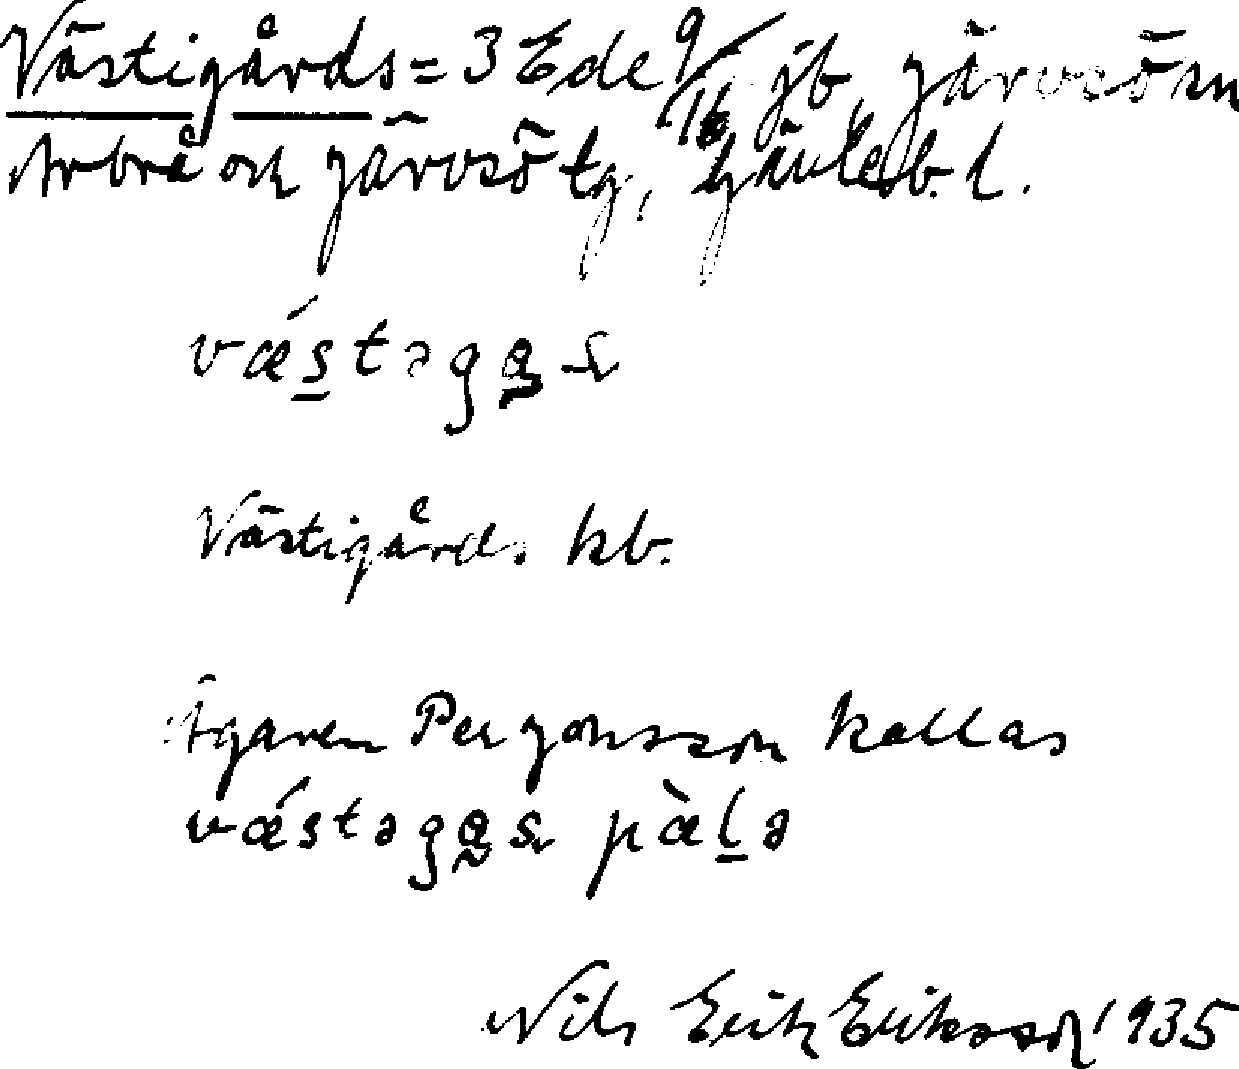 Västigårds = 3 Ede 9/16 jb, Järvsö sn
Arbrå och Järvsö tg, Gävleb. l.
vǽstəga̰s
Västigårds kb.
Ägaren Per Jonsson kallas
vǽstəga̰s pàlə
Nils Erik Eriksson 1935